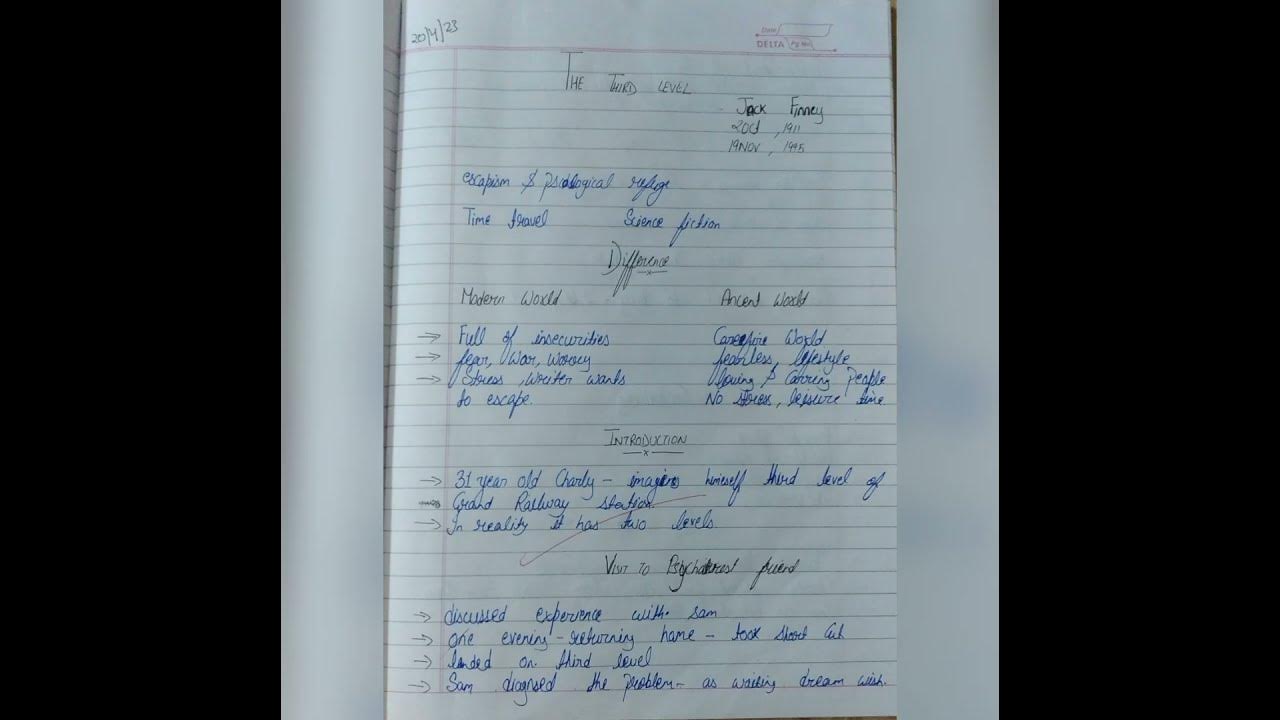 20/4/23
Date
DELTA Pg No.
THE THIRD LEVEL
Jack Finney
2Oct, 1911
19Nov, 1995
escapism & pscological refuge
Time travel Science fiction
Difference
Modern World Ancent World
→ Full of insecurities Carefire World
→ fear, War, Worry fearless, lifestyle
→ Stress, Writer wants loving & Carring People
to escape. No stress, leisure time
INTRODUCTION
→ 31 year old Charly - imagins himeself third level of
Grand Railway station.
→ In reality it has two levels.
VISIT TO Psychaterest friend
→ discussed experience with sam
→ one evening - returning home - took short cut
→ landed on third level
→ Sam diagnsed the problem - as waking dream wish.